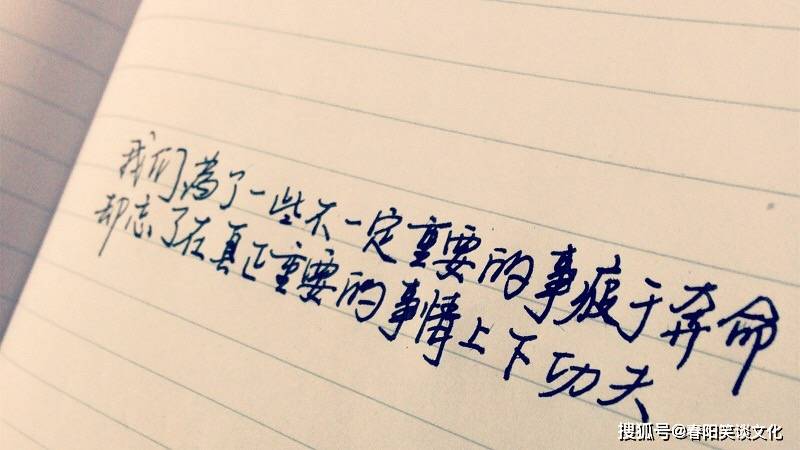 我们为了一些不一定重要的事疲于奔命
却忘了在真正重要的事情上下功夫
搜狐号@春阳笑谈文化